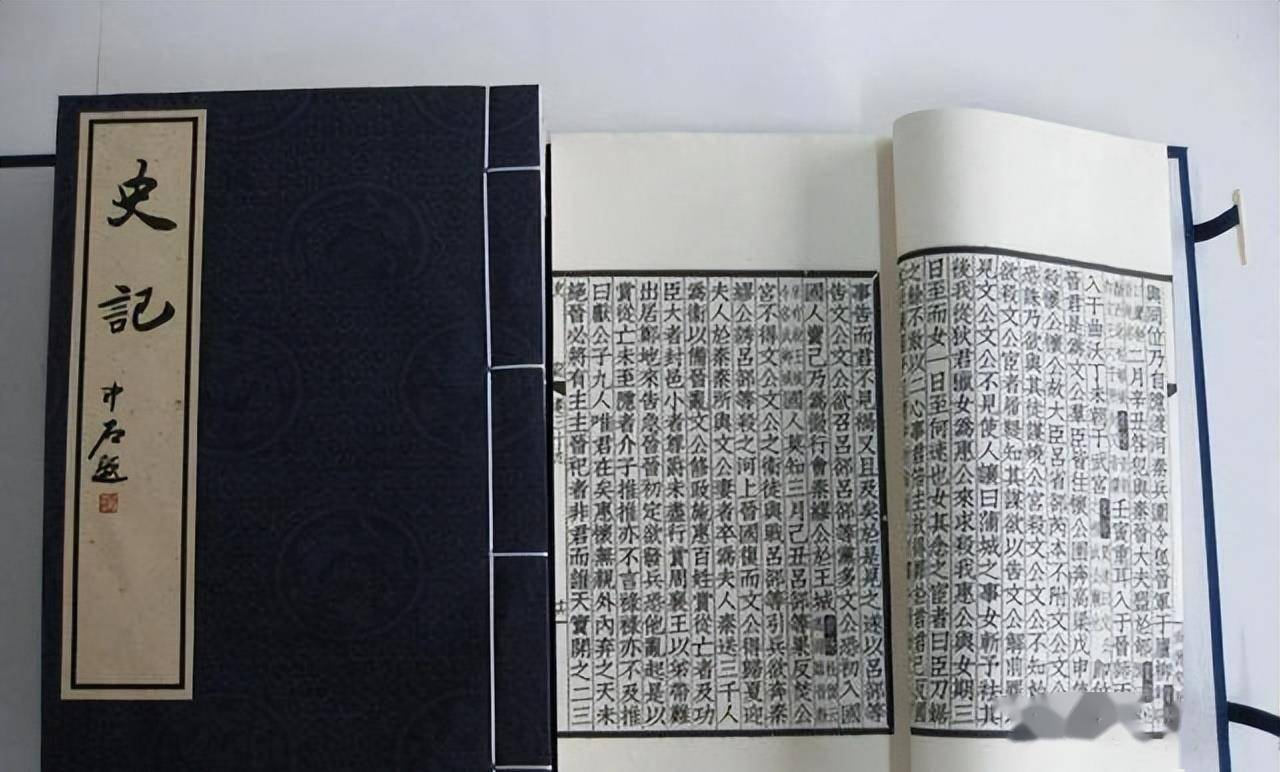 史記
中石題
與同位乃自隱渡河秦兵圍令狐晉軍于
二月辛丑咎犯與秦晉大夫盟於郇
壬寅重耳入于晉師丙
入于曲沃丁未朝于武宮
晉君是為文公羣臣皆往懷公奔高梁戊申使
殺懷公懷公故大臣呂省郤芮本不附文公文公
恐誅乃欲與其徒謀燒公宮殺文公文公不知始
欲殺文公宦者履鞮知其謀欲以告文公解前罪
見文公文公不見使人讓曰蒲城之事女斬予袪其
後我從狄君獵女爲惠公來求殺我惠公與女期三
日至而女一日至何速也女其念之宦者曰臣刀鋸
之餘不敢以二心事君倍主故得罪於君君已反國
事告而君不見禍又且及矣於是見之遂以呂郤等
告文公文公欲召呂郤呂郤等黨多文公恐初入國
國人賣己乃爲微行會秦繆公於王城
國人莫知三月己丑呂郤等果反焚公
宮不得文公文公之衞徒與戰呂郤等引兵欲奔秦
繆公誘呂郤等殺之河上晉國復而文公得歸夏迎
夫人於秦秦所與文公妻者卒爲夫人秦送三千人
爲衞以備晉亂文公修政施惠百姓賞從亡者及功
臣大者封邑小者尊爵未盡行賞周襄王以弟帶難
出居鄭地來告急晉晉初定欲發兵恐他亂起是以
賞從亡未至隱者介子推推亦不言祿祿亦不及推
曰獻公子九人唯君在矣惠懷無親外內弃之天未
絕晉必將有主主晉祀者非君而誰天實開之二三